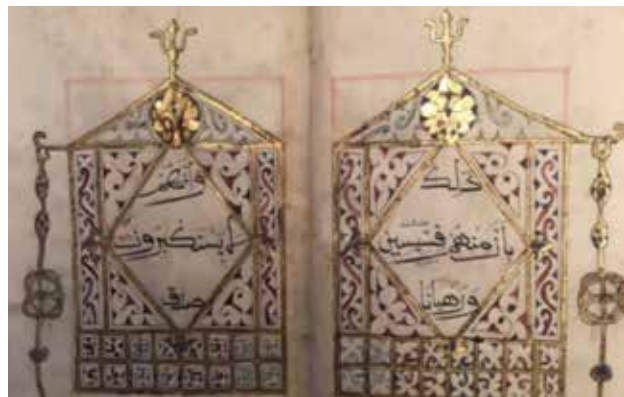 ذلك
بأن منهم قسيسين
ورهبانا
وأنهم
لا يستكبرون